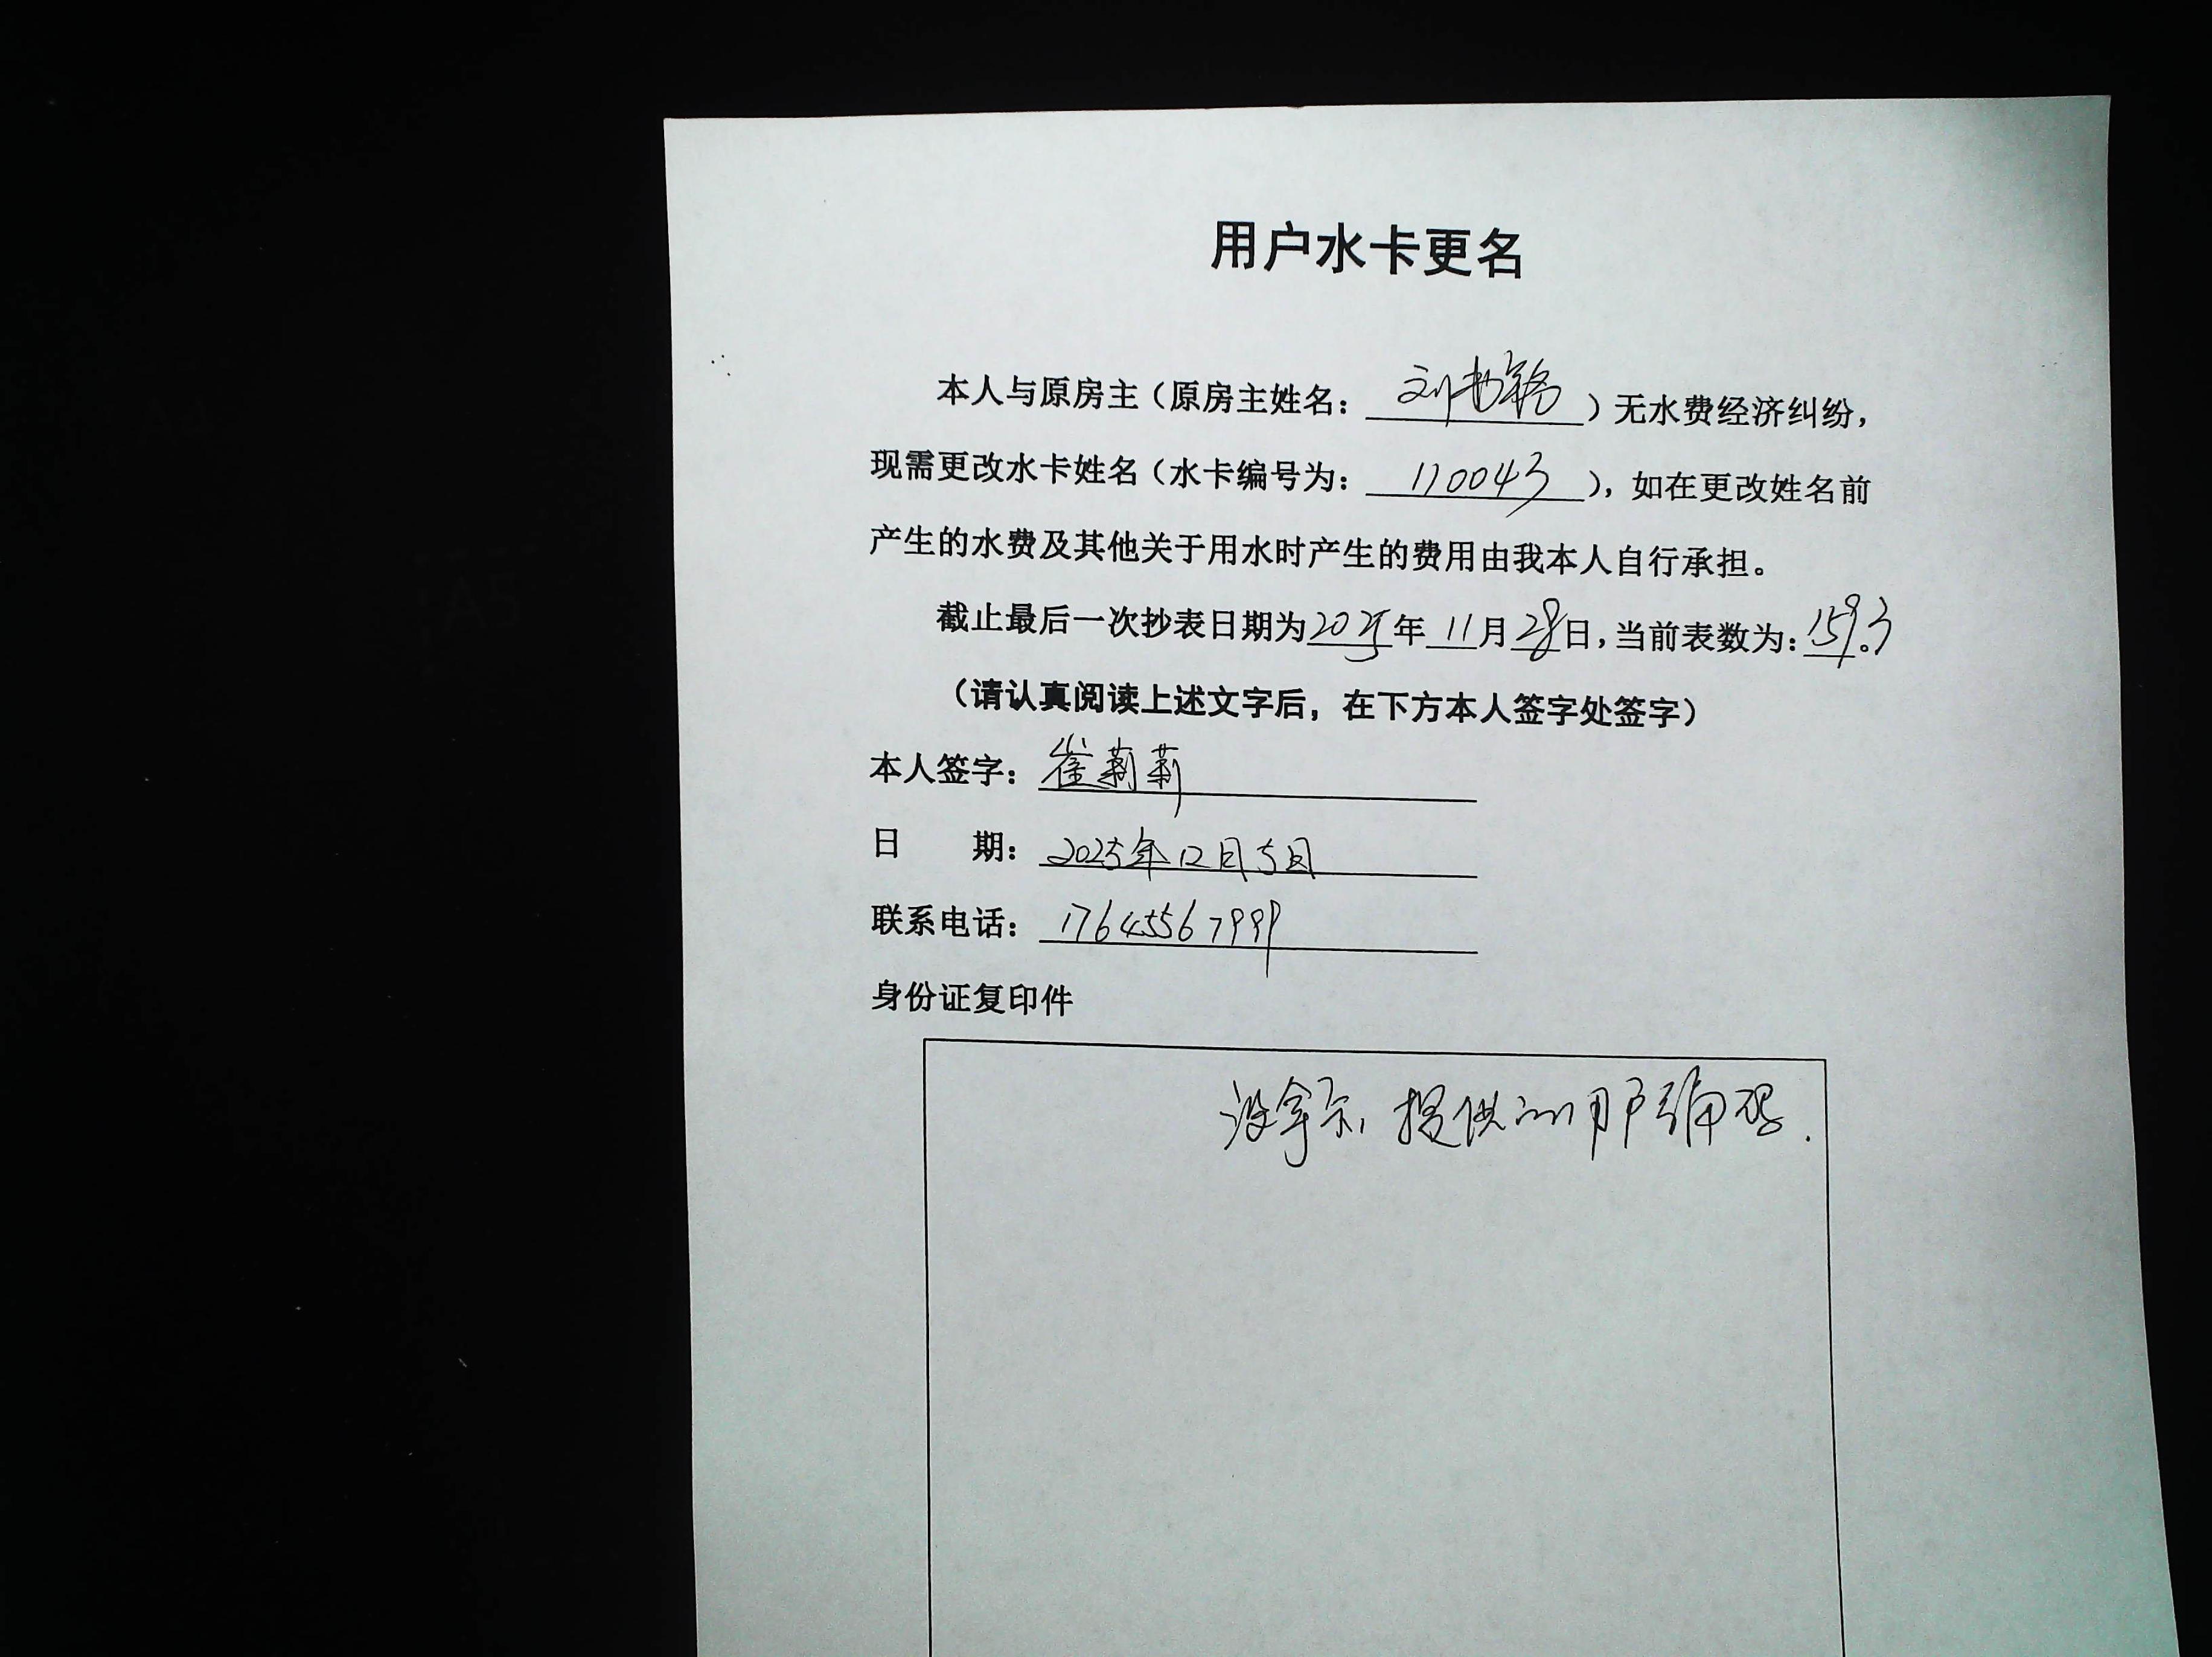 用户水卡更名
本人与原房主（原房主姓名：刘书）无水费经济纠纷，
现需更改水卡姓名（水卡编号为：110043），如在更改姓名前
产生的水费及其他关于用水时产生的费用由我本人自行承担。
截止最后一次抄表日期为2025年11月28日，当前表数为：1593。
（请认真阅读上述文字后，在下方本人签字处签字）
本人签字：崔莉莉
日 期：2025年12月5日
联系电话：17645567999
身份证复印件
没拿卡，提供的用户编码.